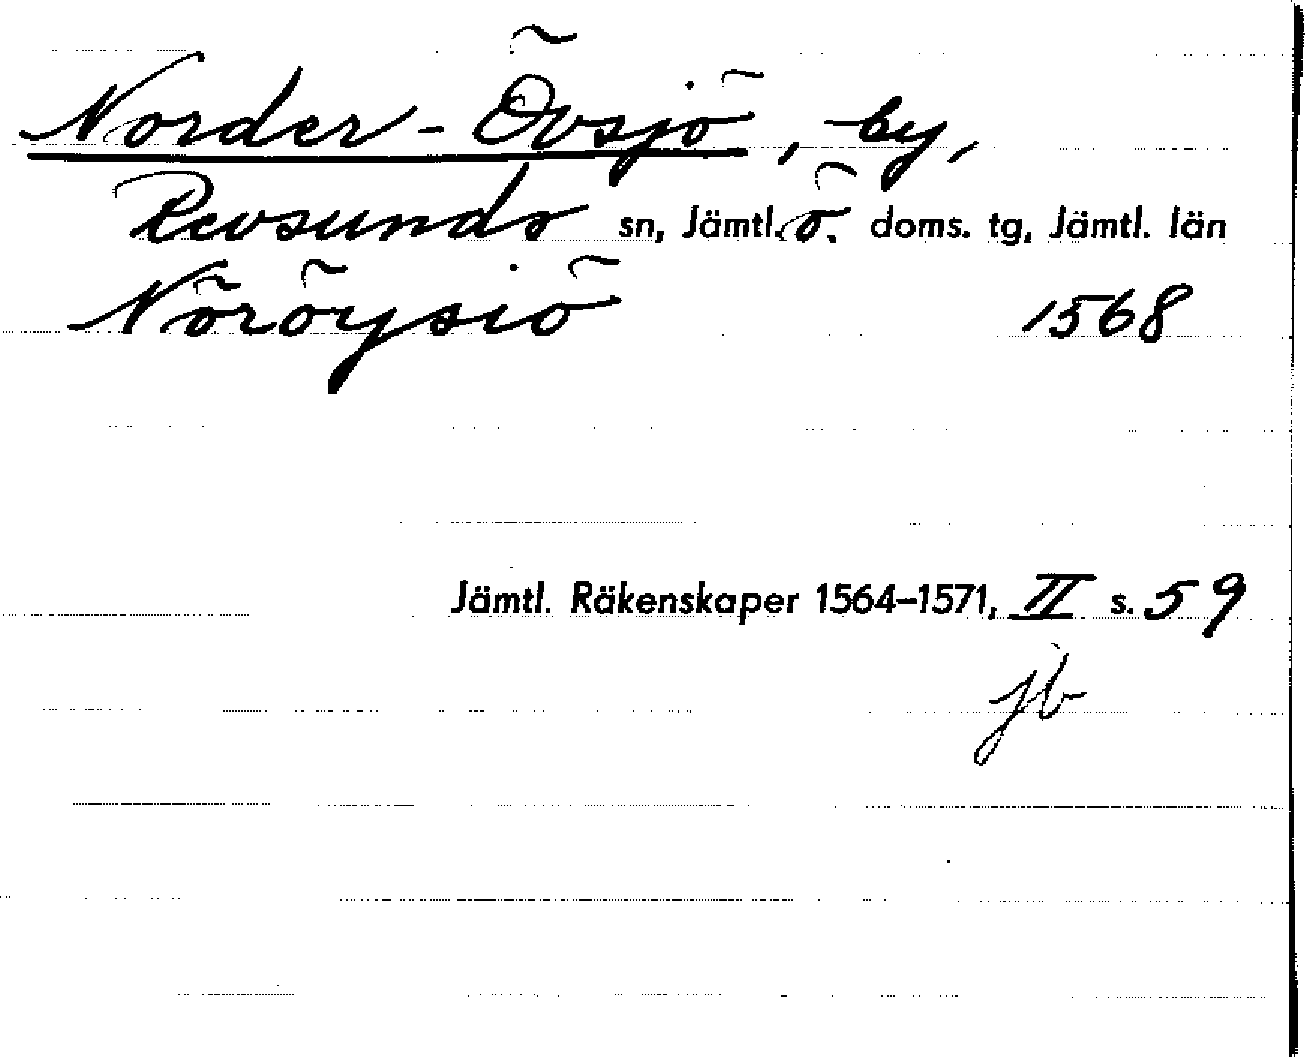 Norder-Övsjö, by,
Revsunds sn, Jämtl. ö. doms. tg, Jämtl. län
Nöröysiö 1568
Jämtl. Räkenskaper 1564–1571, II s. 59
jb